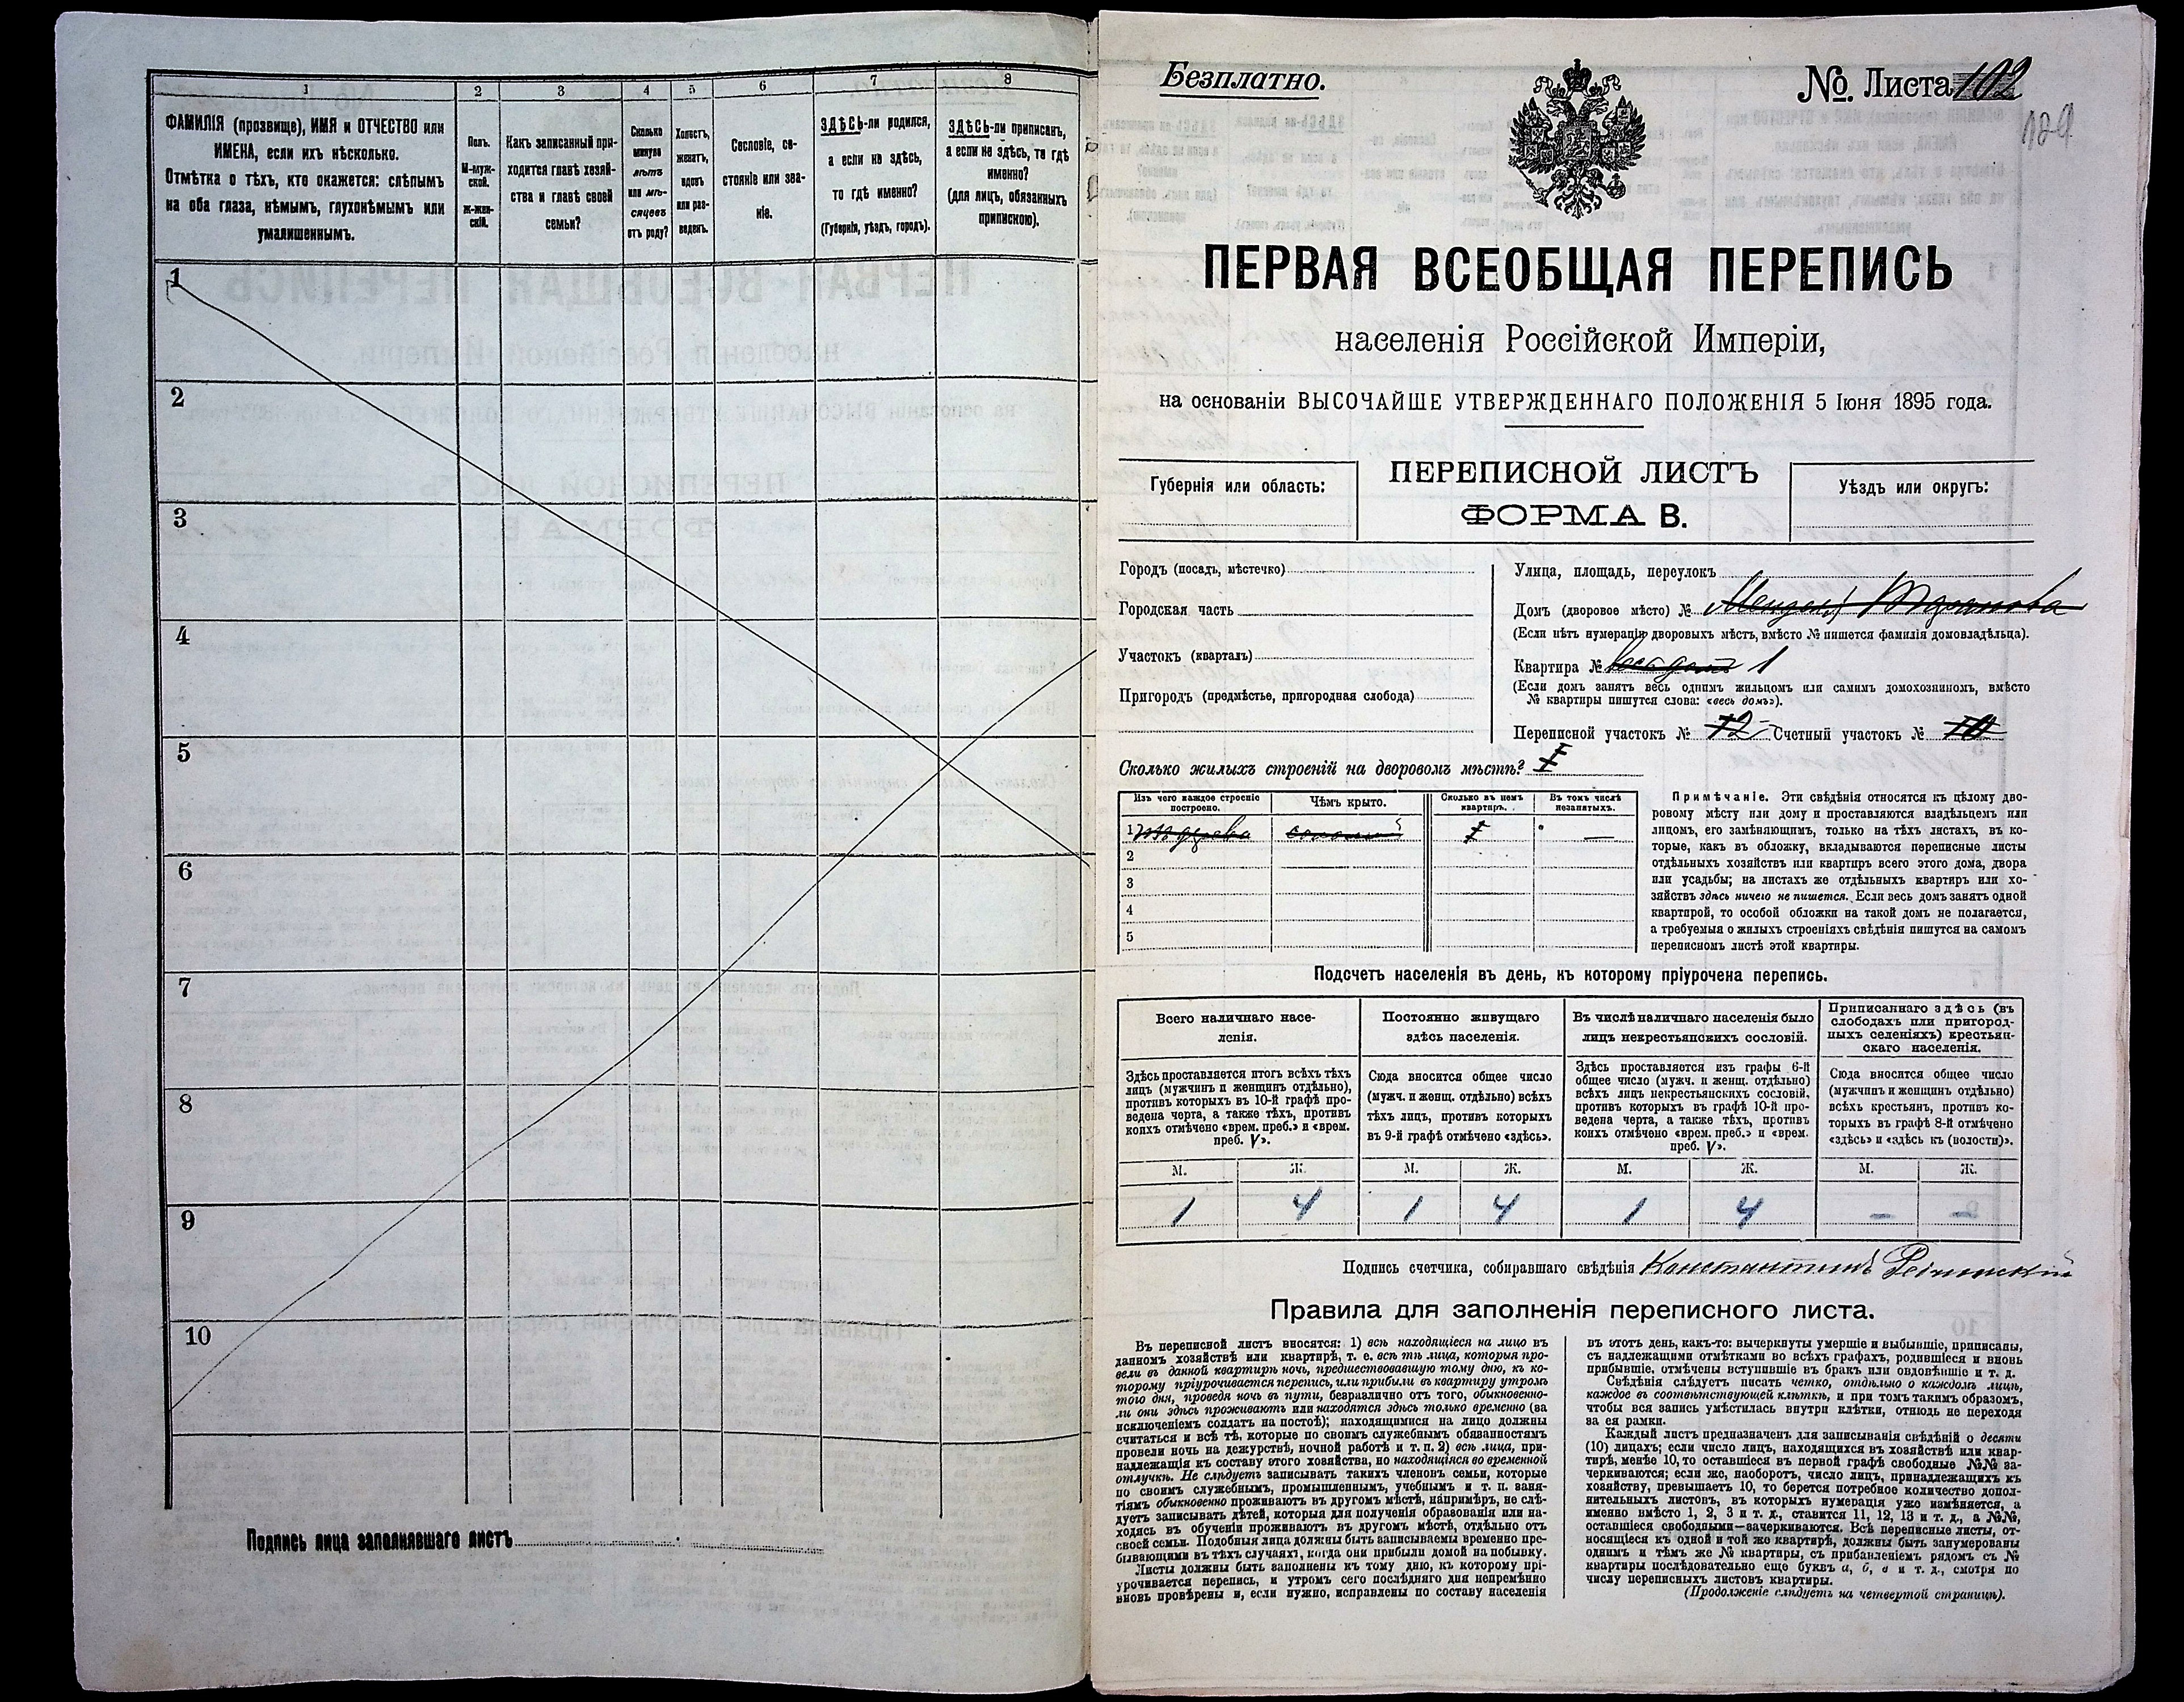 1 2 3 4 5 6 7 8
ФАМИЛІЯ (прозвище), ИМЯ и ОТЧЕСТВО или
ИМЕНА, если ихъ нѣсколько.
Отмѣтка о тѣхъ, кто окажется: слѣпымъ
на оба глаза, нѣмымъ, глухонѣмымъ или
умалишеннымъ.
Полъ.
М-муж-
ской.
Ж-жен-
скій.
Какъ записанный при-
ходится главѣ хозяй-
ства и главѣ своей
семьи?
Сколько
минуло
лѣтъ
или мѣ-
сяцевъ
отъ роду?
Холостъ,
женатъ,
вдовъ
или раз-
веденъ.
Сословіе, со-
стояніе или зва-
ніе.
ЗДѢСЬ-ли родился,
а если не здѣсь,
то гдѣ именно?
(Губернія, уѣздъ, городъ).
ЗДѢСЬ-ли приписан,
а если не здѣсь, то гдѣ
именно?
(для лицъ, обязанныхъ
припискою).
1
2
3
4
5
6
7
8
9
10
Подпись лица заполнявшаго листъ
Безплатно.
№ Листа 102
ПЕРВАЯ ВСЕОБЩАЯ ПЕРЕПИСЬ
населенія Россійской Имперіи,
на основаніи ВЫСОЧАЙШЕ УТВЕРЖДЕННАГО ПОЛОЖЕНІЯ 5 Іюня 1895 года.
Губернія или область:
ПЕРЕПИСНОЙ ЛИСТЪ
ФОРМА В.
Уѣздъ или округъ:
Городъ (посадъ, мѣстечко)
Городская часть
Участокъ (кварталъ)
Пригородъ (предмѣстье, пригородная слобода)
Улица, площадь, переулокъ
Домъ (дворовое мѣсто) №
(Если нѣтъ нумераціи дворовыхъ мѣстъ, вмѣсто № пишется фамилія домовладѣльца).
Квартира № весь домъ 1
(Если домъ занятъ весь однимъ жильцомъ или самимъ домохозяиномъ, вмѣсто
№ квартиры пишутся слова: «весь домъ»).
Переписной участокъ № 12 Счетный участокъ № 10
Сколько жилыхъ строеній на дворовомъ мѣстѣ? 1
Изъ чего каждое строеніе
построено.
Чѣмъ крыто.
Сколько въ немъ
квартиръ.
Въ томъ числѣ
незанятыхъ.
1 Изъ дерева соломой 1 —
2
3
4
5
Примѣчаніе. Эти свѣдѣнія относятся къ цѣлому дво-
ровому мѣсту или дому и проставляются владѣльцемъ или
лицомъ, его замѣняющимъ, только на тѣхъ листахъ, въ ко-
торые, какъ въ обложку, вкладываются переписные листы
отдѣльныхъ хозяйствъ или квартиръ всего этого дома, двора
или усадьбы; на листахъ же отдѣльныхъ квартиръ или хо-
зяйствъ здѣсь ничего не пишется. Если весь домъ занятъ одной
квартирой, то особой обложки на такой домъ не полагается,
а требуемыя о жилыхъ строеніяхъ свѣдѣнія пишутся на самомъ
переписномъ листѣ этой квартиры.
Подсчетъ населенія въ день, къ которому пріурочена перепись.
Всего наличнаго насе-
ленія.
Постоянно живущаго
здѣсь населенія.
Въ числѣ наличнаго населенія было
лицъ некрестьянскихъ сословій.
Приписаннаго здѣсь (въ
слободахъ или пригород-
ныхъ селеніяхъ) крестьян-
скаго населенія.
Здѣсь проставляется итогъ всѣхъ тѣхъ
лицъ (мужчинъ и женщинъ отдѣльно),
противъ которыхъ въ 10-й графѣ про-
ведена черта, а также тѣхъ, противъ
коихъ отмѣчено «врем. преб.» и «врем.
преб. V».
Сюда вносится общее число
(мужч. и женщ. отдѣльно) всѣхъ
тѣхъ лицъ, противъ которыхъ
въ 9-й графѣ отмѣчено «здѣсь».
Здѣсь проставляется изъ графы 6-й
общее число (мужч. и женщ. отдѣльно)
всѣхъ лицъ некрестьянскихъ сословій,
противъ которыхъ въ графѣ 10-й про-
ведена черта, а также тѣхъ, противъ
коихъ отмѣчено «врем. преб.» и «врем.
преб. V».
Сюда вносится общее число
(мужчинъ и женщинъ отдѣльно)
всѣхъ крестьян, противъ ко-
торыхъ въ графѣ 8-й отмѣчено
«здѣсь» и «здѣсь къ (волости)».
М. Ж. М. Ж. М. Ж. М. Ж.
1 4 1 4 1 4 — —
Подпись счетчика, собиравшаго свѣдѣнія Константинъ
Правила для заполненія переписного листа.
Въ переписной листъ вносятся: 1) всѣ находящіеся на лицо въ
данномъ хозяйствѣ или квартирѣ, т. е. всѣ тѣ лица, которыя про-
вели въ данной квартирѣ ночь, предшествовавшую тому дню, къ ко-
торому пріурочивается перепись, или прибыли въ квартиру утромъ
того дня, проведя ночь въ пути, безразлично отъ того, обыкновенно-
ли они здѣсь проживаютъ или находятся здѣсь только временно (за
исключеніемъ солдатъ на постоѣ); находящимися на лицо должны
считаться и всѣ тѣ, которые по своимъ служебнымъ обязанностямъ
провели ночь на дежурствѣ, ночной работѣ и т. п. 2) всѣ лица, при-
надлежащія къ составу этого хозяйства, но находящіяся во временной
отлучкѣ. Не слѣдуетъ записывать такихъ членовъ семьи, которые
по своимъ служебнымъ, промышленнымъ, учебнымъ и т. п. заня-
тіямъ обыкновенно проживаютъ въ другомъ мѣстѣ, напримѣръ, не слѣ-
дуетъ записывать дѣтей, которыя для полученія образованія или на-
ходясь въ обученіи проживаютъ въ другомъ мѣстѣ, отдѣльно отъ
своей семьи. Подобныя лица должны быть записываемы временно пре-
бывающими въ тѣхъ случаяхъ, когда они прибыли домой на побывку.
Листы должны быть заполнены къ тому дню, къ которому прі-
урочивается перепись, и утромъ сего послѣдняго дня непремѣнно
вновь провѣрены и, если нужно, исправлены по составу населенія
въ этотъ день, какъ-то: вычеркнуты умершіе и выбывшіе, приписаны,
съ надлежащими отмѣтками во всѣхъ графахъ, родившіеся и вновь
прибывшіе, отмѣчены вступившіе въ бракъ или овдовѣвшіе и т. д.
Свѣдѣнія слѣдуетъ писать четко, отдѣльно о каждомъ лицѣ,
каждое въ соотвѣтствующей клѣткѣ, и при томъ такимъ образомъ,
чтобы вся запись умѣстилась внутри клѣтки, отнюдь не переходя
за ея рамки.
Каждый листъ предназначенъ для записыванія свѣдѣній о десяти
(10) лицахъ; если число лицъ, находящихся въ хозяйствѣ или квар-
тирѣ, менѣе 10, то оставшіеся въ первой графѣ свободные №№ за-
черкиваются; если же, наоборотъ, число лицъ, принадлежащихъ къ
хозяйству, превышаетъ 10, то берется потребное количество допол-
нительныхъ листовъ, въ которыхъ нумерація уже измѣняется, а
именно вмѣсто 1, 2, 3 и т. д., ставится 11, 12, 13 и т. д., а №№,
оставшіеся свободными—зачеркиваются. Всѣ переписные листы, от-
носящіеся къ одной и той же квартирѣ, должны быть занумерованы
однимъ и тѣмъ же № квартиры, съ прибавленіемъ рядомъ съ №
квартиры послѣдовательно еще буквъ а, б, в и т. д., смотря по
числу переписныхъ листовъ квартиры.
(Продолженіе слѣдуетъ на четвертой страницѣ).